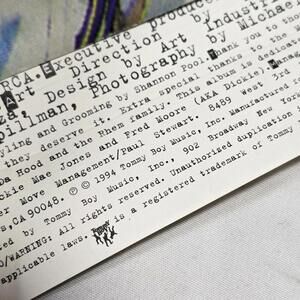 RCA. Executive produce
Art Direction by
za, Design by Art Industri
pillman, Photography by Michael
yling and Grooming by Shannon Pool. Thank you to the
they deserve it. Extra special thank you's to
ba Hood and the Rhem family. This album is dedicate
ckie Mae Jones and Fred Moore (AKA Dickie)
er Move Management/Paul Stewart. 8489 West 3rd
s, CA 90048. ℗ © 1994 Tommy Boy Music, Inc. Manufactured
ted by Tommy Boy Music, Inc., 902 Broadway New York
D/WARNING: All rights reserved. Unauthorized duplication
applicable laws. is a registered trademark of Tommy